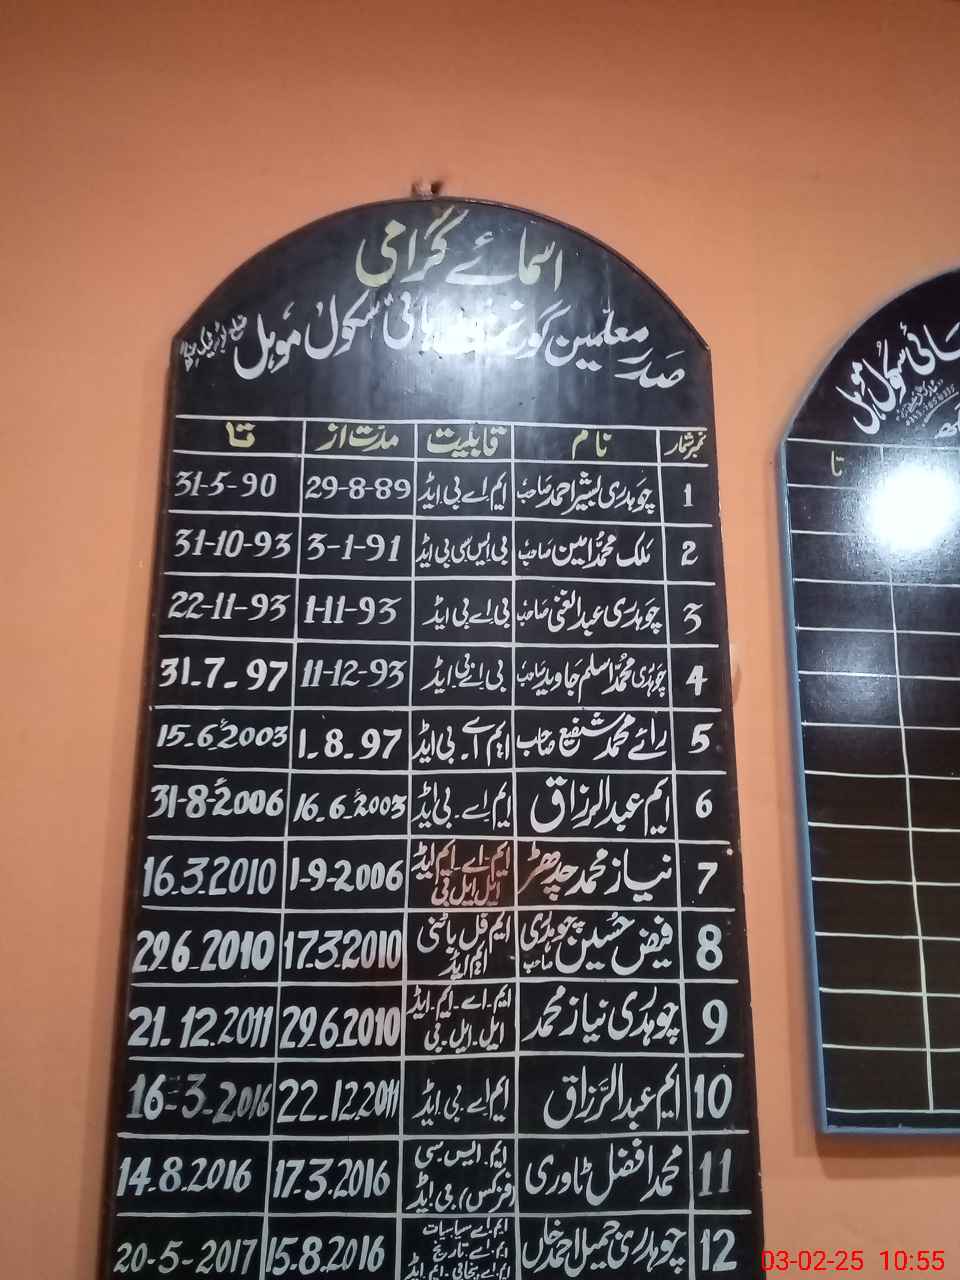 اسمائے گرامی
صدر معلمین گورنمنٹ ہائی سکول موہل
نمبر شمار نام قابلیت مدت از تا
1 چوہدری بشیر احمد صاحب ایم اے بی ایڈ 29-8-89 31-5-90
2 ملک محمد امین صاحب بی ایس سی بی ایڈ 3-1-91 31-10-93
3 چوہدری عبدالغنی صاحب بی اے بی ایڈ 1-11-93 22-11-93
4 چوہدری محمد اسلم جاوید صاحب بی اے بی ایڈ 11-12-93 31.7.97
5 رائے محمد شفیع صاحب ایم اے۔ بی ایڈ 1.8.97 15.6.2003ء
6 ایم عبدالرزاق ایم اے۔ بی ایڈ 16.6.2003ء 31-8-2006ء
7 نیاز محمد چدھڑ ایم۔اے۔ ایم ایڈ ایل ایل بی 1-9-2006 16.3.2010
8 فیض حسین چوہدری صاحب ایم فل باٹنی ایم ایڈ 17.3.2010 29.6.2010
9 چوہدری نیاز محمد ایم۔اے۔ ایم۔ایڈ ایل۔ایل۔بی 29.6.2010 21.12.2011
10 ایم عبدالرزاق ایم اے۔ بی۔ایڈ 22.12.2011 16-3-2016
11 محمد افضل ٹاوری ایم۔ایس سی (فزکس) بی۔ایڈ 17.3.2016 14.8.2016
12 چوہدری جمیل احمد خاں ایم۔اے سیاسیات ایم۔اے۔تاریخ ایم۔اے پنجابی۔ ایم۔ایڈ 15.8.2016 20-5-2017
ہائی سکول موہل
تا
03-02-25 10:55